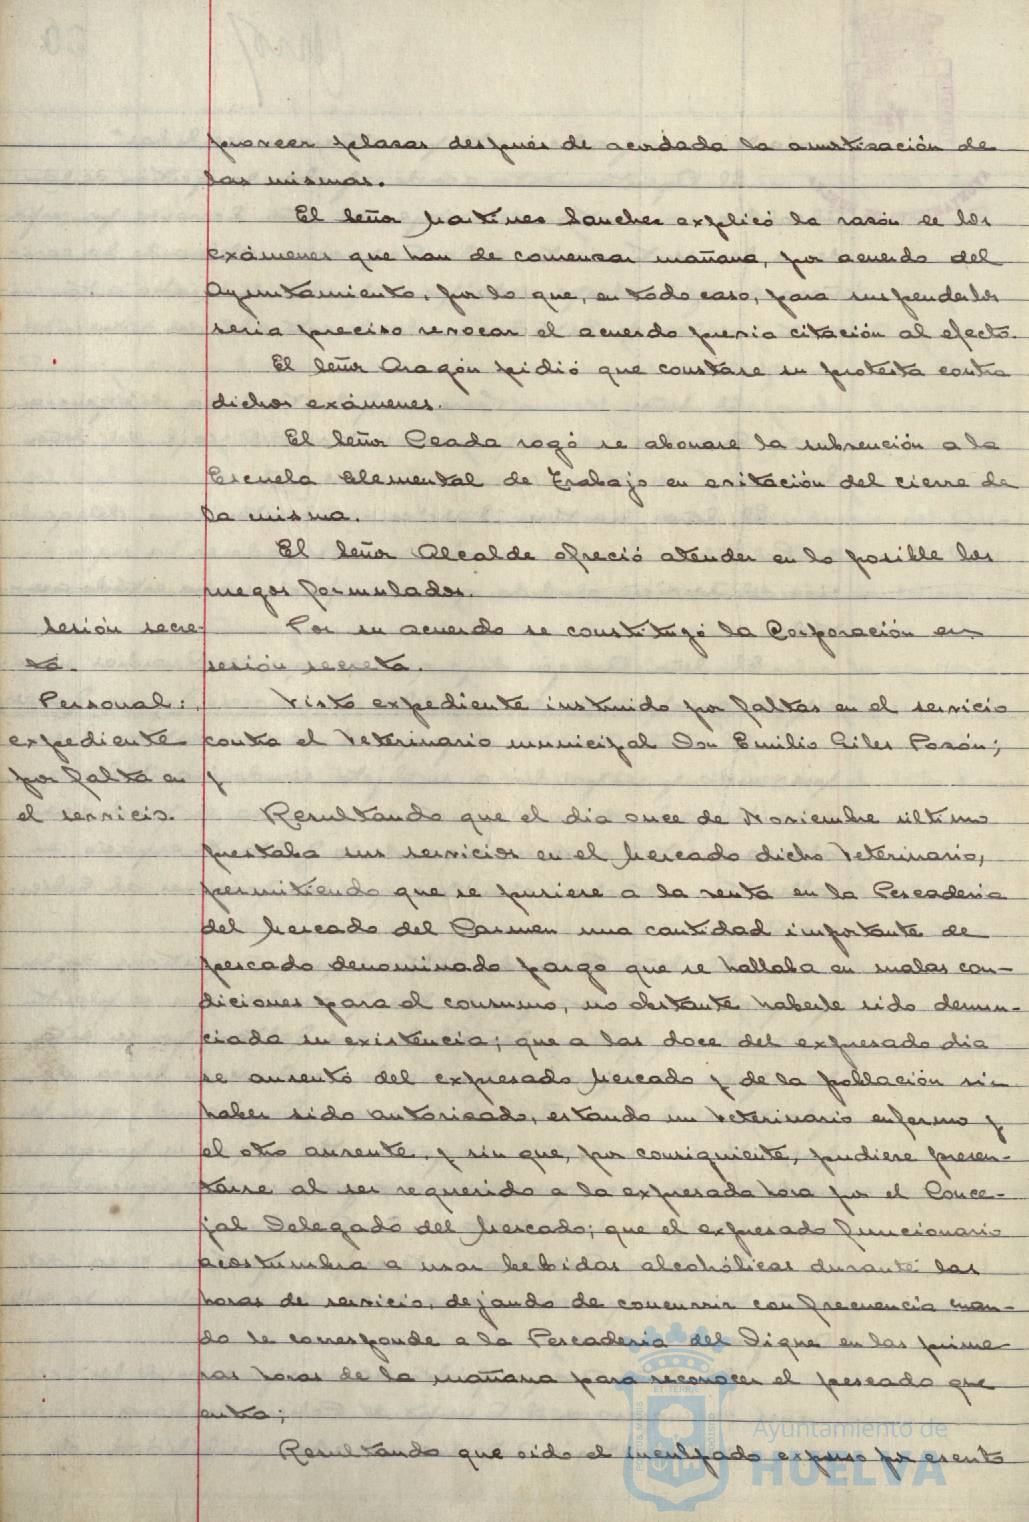 proveer plazas después de acordada la amortización de
las mismas.
El Señor Martínez Sanchez explicó la razón de los
exámenes que han de comenzar mañana, por acuerdo del
Ayuntamiento, por lo que, en todo caso, para suspenderlos
sería preciso revocar el acuerdo previa citación al efecto.
El Señor Aragón pidió que constase su protesta contra
dichos exámenes.
El Señor Ceada rogó se abonase la subvención a la
Escuela Elemental de Trabajo en evitación del cierre de
la misma.
El Señor Alcalde ofreció atender en lo posible los
ruegos formulados.
Sesión secre-
ta.
Por su acuerdo se constituyó la Corporación en
sesión secreta.
Personal:
expediente
por falta en
el servicio.
Visto expediente instruido por faltas en el servicio
contra el Veterinario municipal Don Emilio Giles Pozón;
y
Resultando que el dia once de Noviembre último
prestaba sus servicios en el Mercado dicho Veterinario,
permitiendo que se pusiese a la venta en la Pescaderia
del Mercado del Carmen una cantidad importante de
pescado denominado pargo que se hallaba en malas con-
diciones para el consumo, no obstante haberle sido denun-
ciada su existencia; que a las doce del expresado dia
se ausentó del expresado Mercado y de la población sin
haber sido autorizado, estando un Veterinario enfermo y
el otro ausente, y sin que, por consiguiente, pudiese presen-
tarse al ser requerido a la expresada hora por el Conce-
jal Delegado del Mercado; que el expresado funcionario
acostumbra a usar bebidas alcohólicas durante las
horas de servicio, dejando de concurrir con frecuencia cuan-
do le corresponde a la Pescaderia del Dique en las prime-
ras horas de la mañana para reconocer el pescado que
entra;
Resultando que oido el inculpado expuso por escrito
Ayuntamiento de
HUELVA